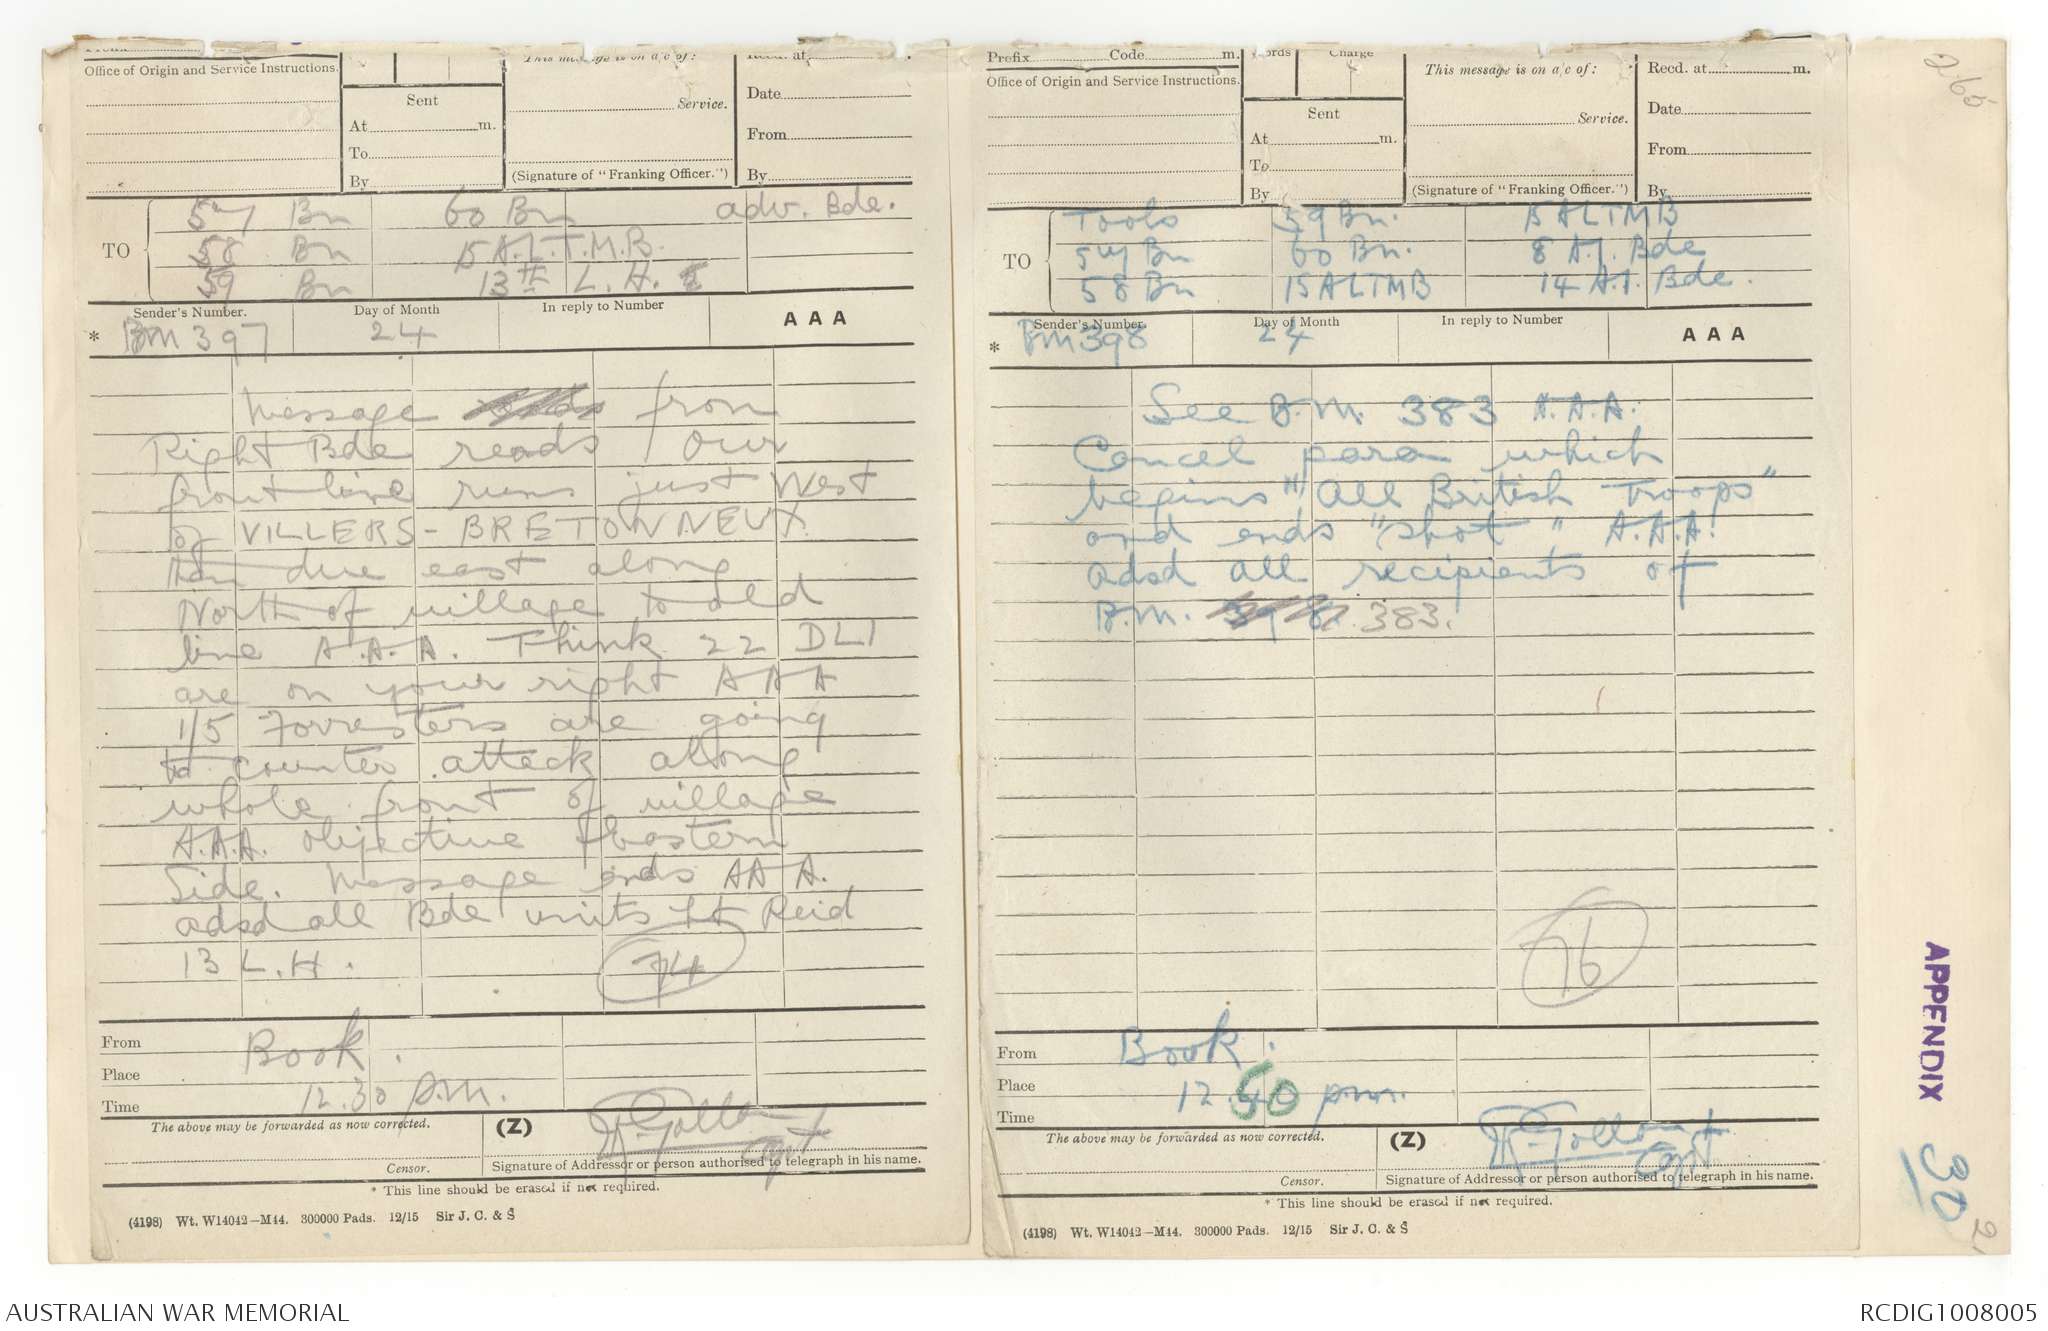 Office of Origin and Service Instructions.
Sent
At m.
To
By
This message is on a/c of:
Service.
(Signature of "Franking Officer.")
Recd. at
Date
From
By
TO
57 Bn 60 Bn adv. Bde.
58 Bn 15 A.L.T.M.B.
59 Bn 13th L.H.
Sender's Number. Day of Month In reply to Number AAA
* BM 397 24
Message from
Right Bde reads / our
front line runs just West
of VILLERS-BRETONNEUX
then due east along
North of village to old
line A.A.A. Think 22 DLI
are on your right AAA
1/5 Forresters are going
to counter attack along
whole front of village
A.A.A. objective Eastern
Side. Message ends AAA.
adsd all Bde units Lt Reid
13 L.H.
74
From Book.
Place
Time 12.30 p.m.
The above may be forwarded as now corrected. (Z)
Capt
Censor. Signature of Addressor or person authorised to telegraph in his name.
* This line should be erased if not required.
(4198) Wt. W14042-M44. 300000 Pads. 12/15 Sir J. C. & S
Prefix Code m.
Charge
Office of Origin and Service Instructions.
Sent
At m.
To
By
This message is on a/c of:
Service.
(Signature of "Franking Officer.")
Recd. at m.
Date
From
By
TO
Tools 59 Bn. 15 ALTMB
57 Bn 60 Bn. 8 A.I. Bde
58 Bn 15 ALTMB 14 A.I. Bde.
Sender's Number. Day of Month In reply to Number AAA
* BM 398 24
See B.M. 383 A.A.A.
Cancel para which
begins "All British Troops"
and ends "shot" A.A.A.
adsd all recipients of
B.M. 383.
76
From Book.
Place
Time 12.50 p.m.
The above may be forwarded as now corrected. (Z)
Capt
Censor. Signature of Addressor or person authorised to telegraph in his name.
* This line should be erased if not required.
(4198) Wt. W14042-M44. 300000 Pads. 12/15 Sir J. C. & S
265
APPENDIX
30
AUSTRALIAN WAR MEMORIAL
RCDIG1008005